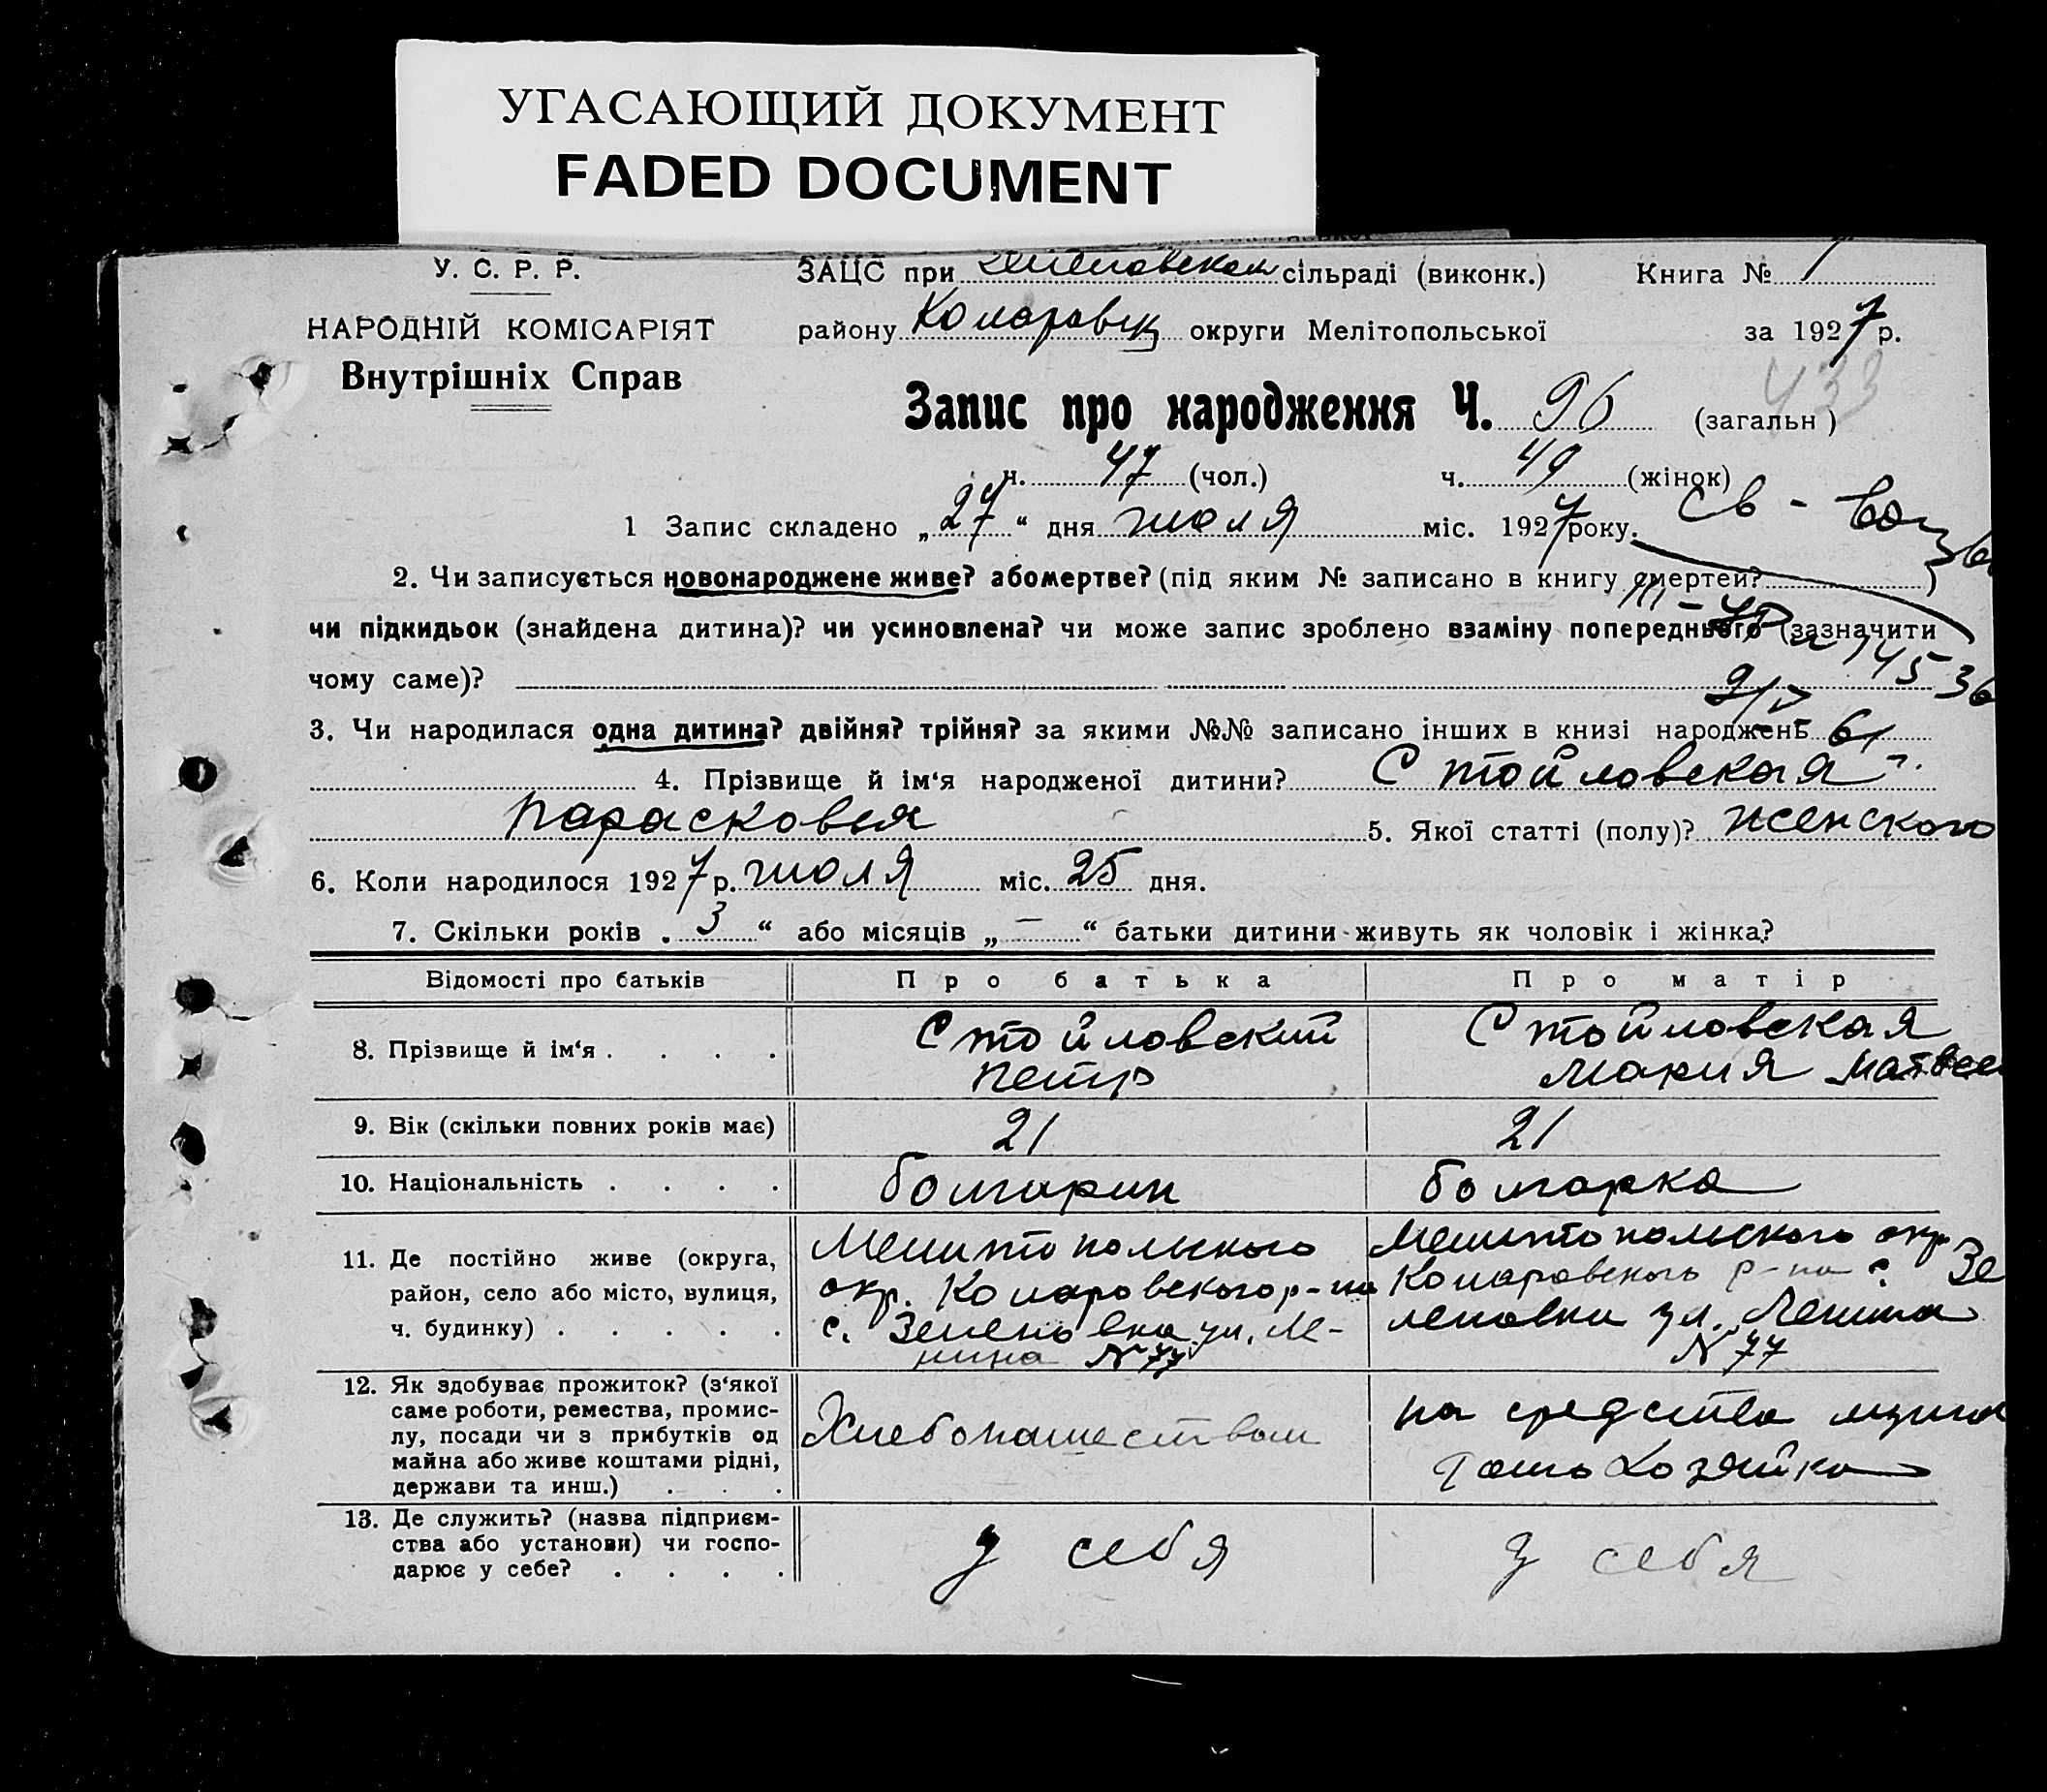 УГАСАЮЩИЙ ДОКУМЕНТ
FADED DOCUMENT
У. С. Р. Р.
ЗАЦС при сільраді (виконк.) Книга № 1
НАРОДНІЙ КОМІСАРІЯТ
району Комаровск округи Мелітопольської за 1927 р.
Внутрішніх Справ
433
Запис про народження Ч. 96 (загальн)
ч. 47 (чол.) ч. 49 (жінок)
1 Запис складено „27“ дня июля міс. 1927 року.
Св -
2. Чи записується новонароджене живе? або мертве? (під яким № записано в книгу смертей? )
чи підкидьок (знайдена дитина)? чи усиновлена? чи може запис зроблено взаміну попереднього (зазначити
чому саме)?
3. Чи народилася одна дитина? двійня? трійня? за якими №№ записано інших в книзі народжень 61
4. Прізвище й ім‘я народженої дитини? Стойловская
Парасковья 5. Якої статті (полу)? женского
6. Коли народилося 1927 р. июля міс. 25 дня.
7. Скільки років „3“ або місяців „—“ батьки дитини живуть як чоловік і жінка?
Відомості про батьків Про батька Про матір
8. Прізвище й ім‘я . . . . Стойловский Стойловская
Петр Мария Матвее
9. Вік (скільки повних років має) 21 21
10. Національність . . . . болгарин болгарка
11. Де постійно живе (округа, Мелитопольского Мелитопольского окр
район, село або місто, вулиця, окр. Комаровского р-на Комаровского р-на с. Зе
ч. будинку) . . . . . с. Зеленовка ул. Ле- леновки ул. Ленина
нина № 77 № 77
12. Як здобуває прожиток? (з‘якої
саме роботи, ремества, промис- на средства мужа
лу, посади чи з прибутків од Хлебопашеством
майна або живе коштами рідні, Домохозяйка
держави та инш.) . . .
13. Де служить? (назва підприєм-
ства або установи) чи госпо- у себя у себя
дарює у себе? . . . .